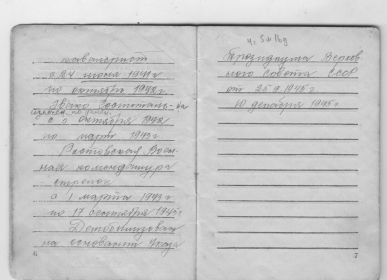 кавалерист
с 24 июля 1941 г
по октябрь 1942 г
Эвако госпиталь
с 2 октября 1942
по март 1943 г
Ростовская Воен
ная комендатура
стрелок
с 1 марта 1943 г
по 17 сентября 1945 г
Демобилизован
на основании Указа
6
Президиума Верхов
ного совета СССР
от 25.9.1945 г
10 декабря 1945 г
7